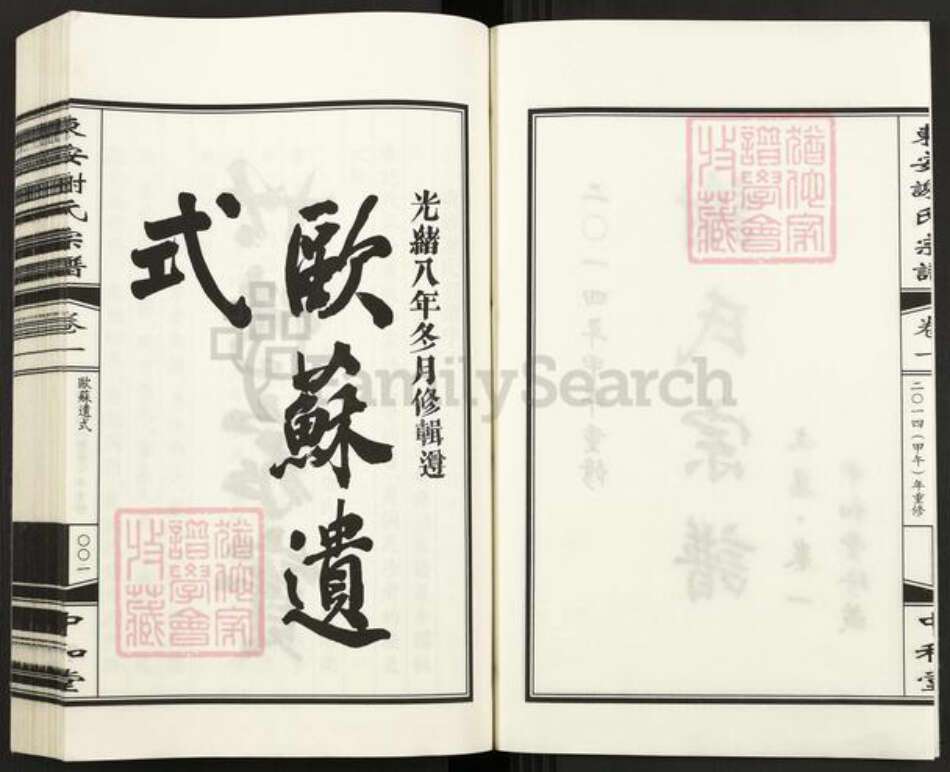 東安謝氏宗譜
卷一
二〇一四（甲午）年重修
中和堂
光緒八年冬月修輯遵
歐蘇遺
式
東安謝氏宗譜
卷一
歐蘇遺式
〇〇一
中和堂
譜學會
收藏
譜學會
收藏
FamilySearch